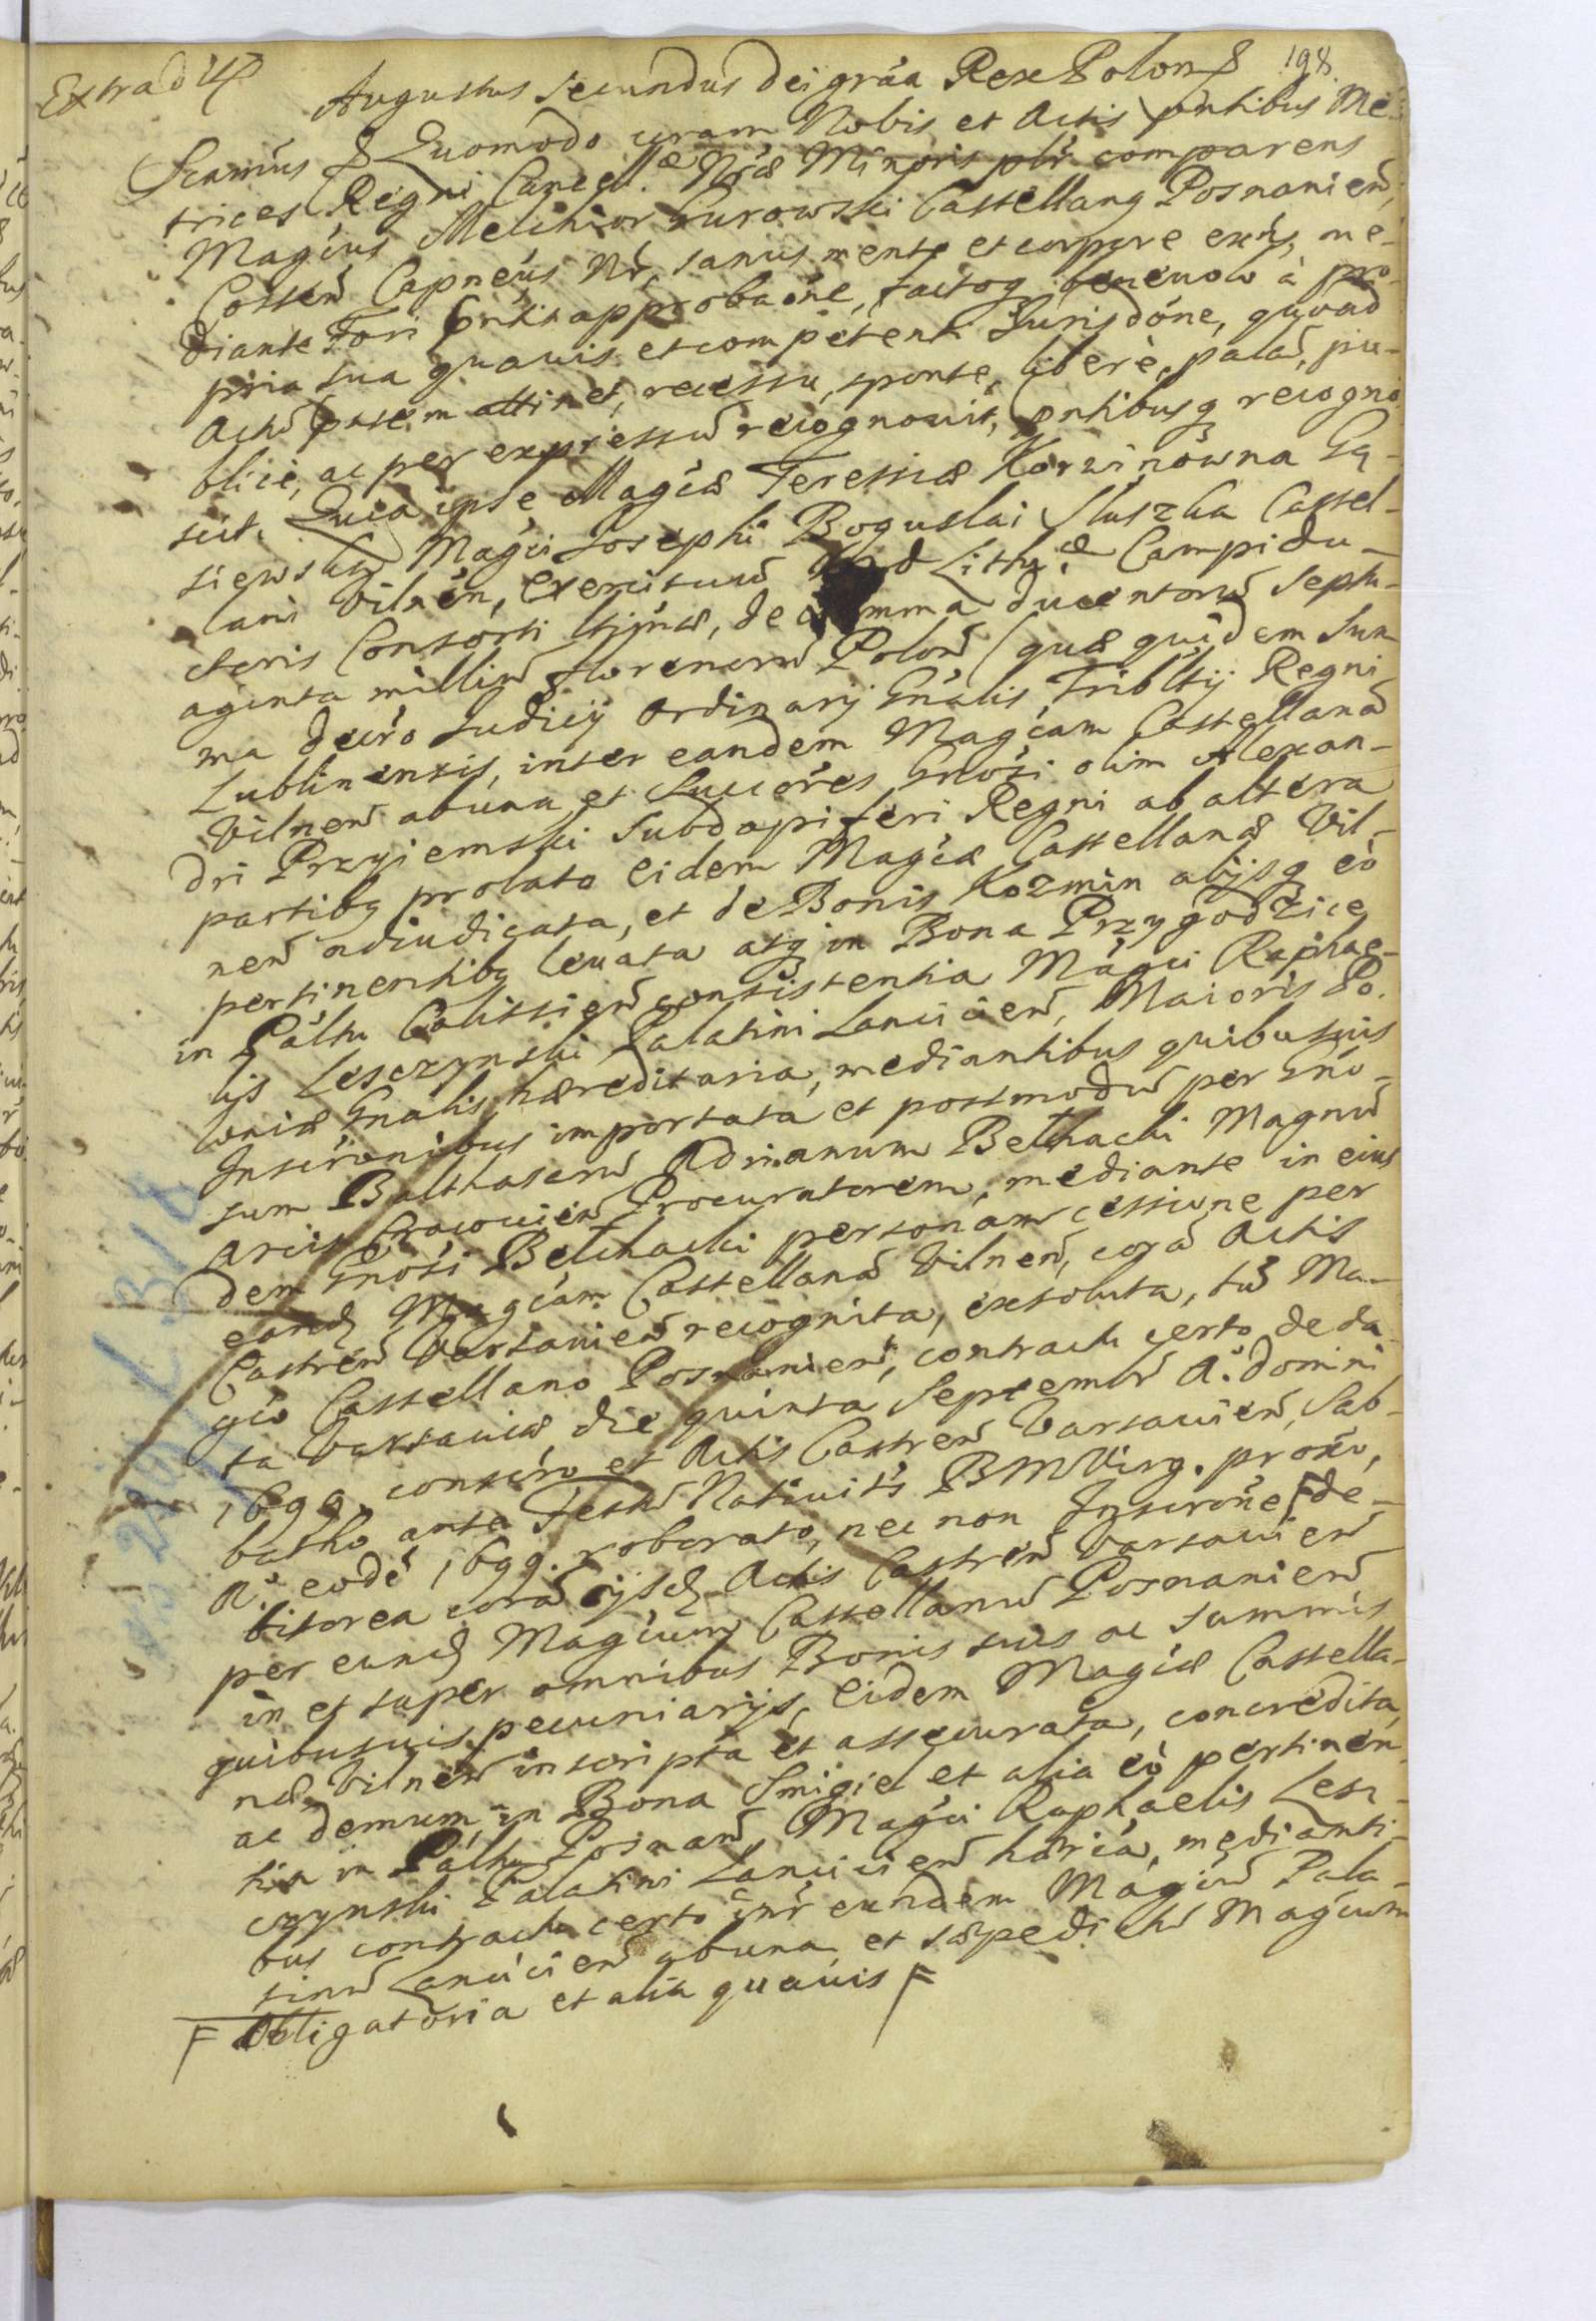 198.
Extrad
Augustus Secundus Dei gráa Rex Polon
Scamús Quomodo coram Nobis et Actis pntibus Me-
trices Regni Cancell.æ Nrǽ Minoris plr comparens
Magćus Melchior Gurowski Castellanq Posnanień,
Costeń Capneús Nr, sanus mente et corpore exńs, me-
diante Fori pntis approbaóne, factoq beneuolo à pro-
pria sua quauis et competenti Jurisdóne, quoad
Actú pntem attinet, recessu, sponte, liberè, palá, pu-
blicè, ac per expressú recognouit, pntibusq recogno-
scit. Quia ipse Magćæ Teressiæ Korzinówna Gą-
siewska Magći Josephi Boguslai Sluszka Castel-
lani Vilnén, Exercituú M D Lith.æ Campi du-
ctoris Consorti ltijmæ, de summa ducentorú septu-
aginta milliú florenorú Poloń (quæ quidem sum-
ma decro Judicij Ordinarij Gnalis Tribltij Regni
Lublinensis, inter eandem Magćam Castellaná
Vilneń ab una, et Succóres Gnósi olim Alexan-
dri Przyiemski Subdapiferi Regni ab altera
partibq prolato eidem Magćæ Castellanæ Vil-
neń adiudicata, et de Bonis Kozmin alijsq eò
pertinentibq leuata atq in Bona Przygodzice
in Páltu Calissień consistentia Magći Raphae-
lis Lesczynski Palatini Lancicień, Maioris Po-
loniæ Gnalis, hæreditaria, mediantibus quibusuis
Inscrónibus importata et postmodú per Gnó-
sum Balthaserú Adrianum Bethacki Magnú
Arcis Cracouień Procuratorem, mediante in eius
dem Gnósi Bethacki personam cessione per
eand Magćam Castellaná Vilneń, corá Actis
Castreń Varsauień recognita, exsoluta, tú Ma-
gćo Castellano Posnanień, contractu certo de da-
ta Varsauiæ die quinta Septembr A.o Domini
1699. conscro et Actis Castreń Varsauień, Sab-
batho ante Festú Natiuitis BMVirg. proxo,
A.o eodé 1699. roborato, nec non Inscróne F de-
bitorea corá ijsd Actis Castreń Varsauień
per eund Magćum Castellanú Posnanień
in et super omnibus Bonis suis ac summis
quibusuis pecuniarijs, eidem Magćæ Castella-
næ Vilneń inscripta et assecurata, concredita,
ac demum in Bona Smigiel et alia eò pertinen-
tia in Páltu Posnań, Magći Raphaelis Les-
czynski Palatini Lancicień hæria, medianti-
bus contractu certo intr eundem Magćú Pala-
tinú Lancicień ab una et sæpedictú Magćum
F Obligatoria et alia quauis F